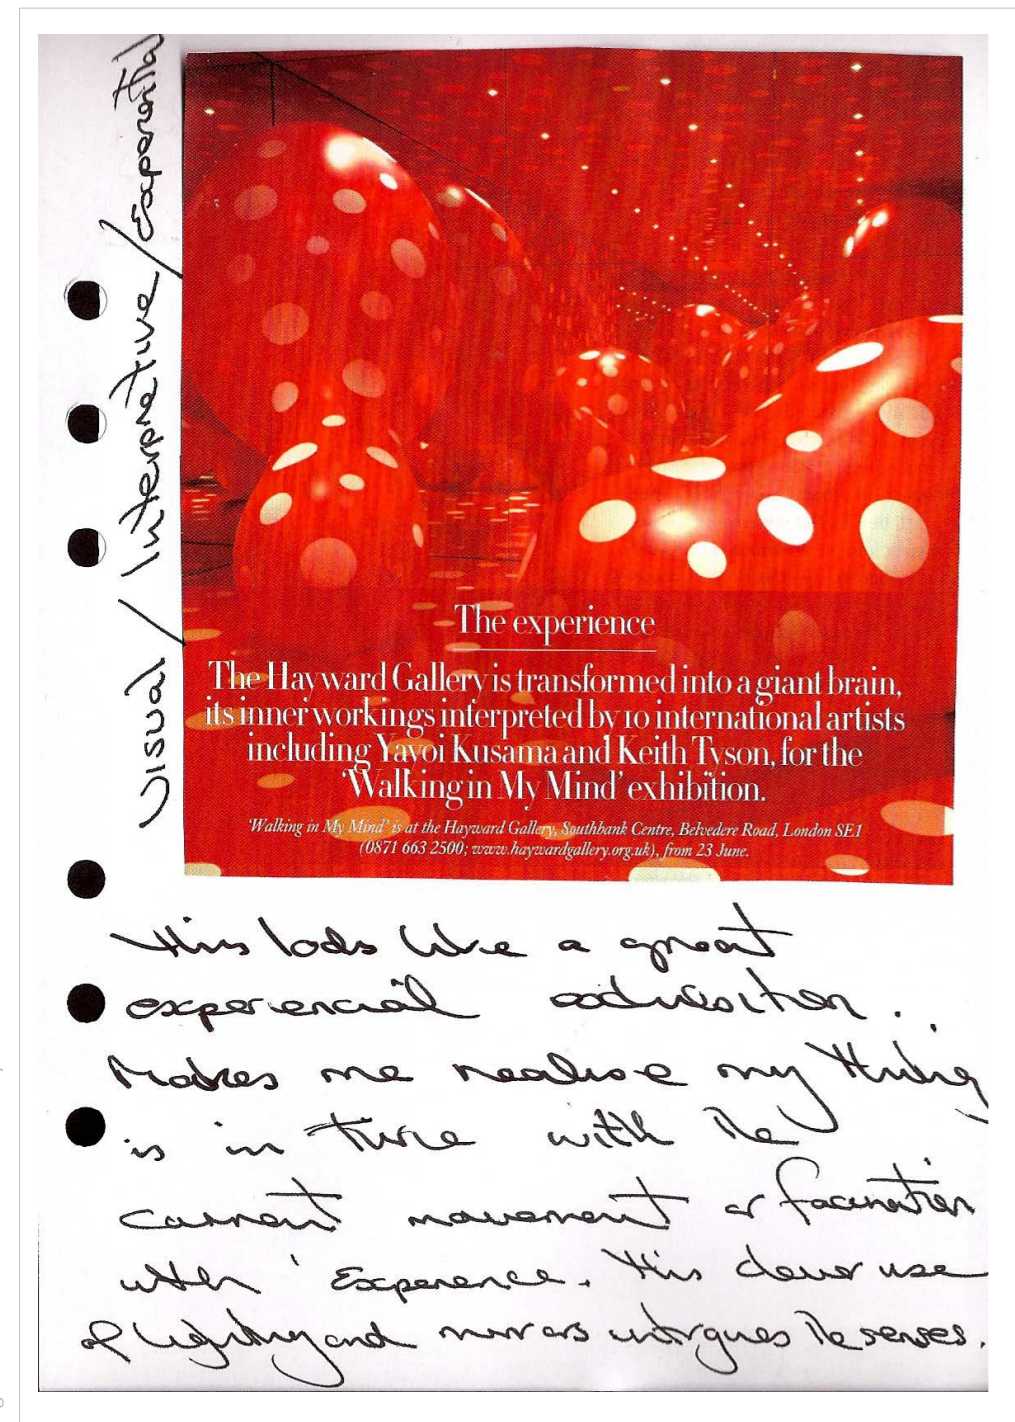 Visual / Interpretive / Experiential
The experience
The Hayward Gallery is transformed into a giant brain,
its inner workings interpreted by 10 international artists
including Yayoi Kusama and Keith Tyson, for the
'Walking in My Mind' exhibition.
'Walking in My Mind' is at the Hayward Gallery, Southbank Centre, Belvedere Road, London SE1
(0871 663 2500; www.haywardgallery.org.uk), from 23 June.
This looks like a great
experiencial
Makes me realise my thinking
is in tune with the
current movement or facination
with 'Experience. This clever use
of lighting and mirrors intrigues the senses.